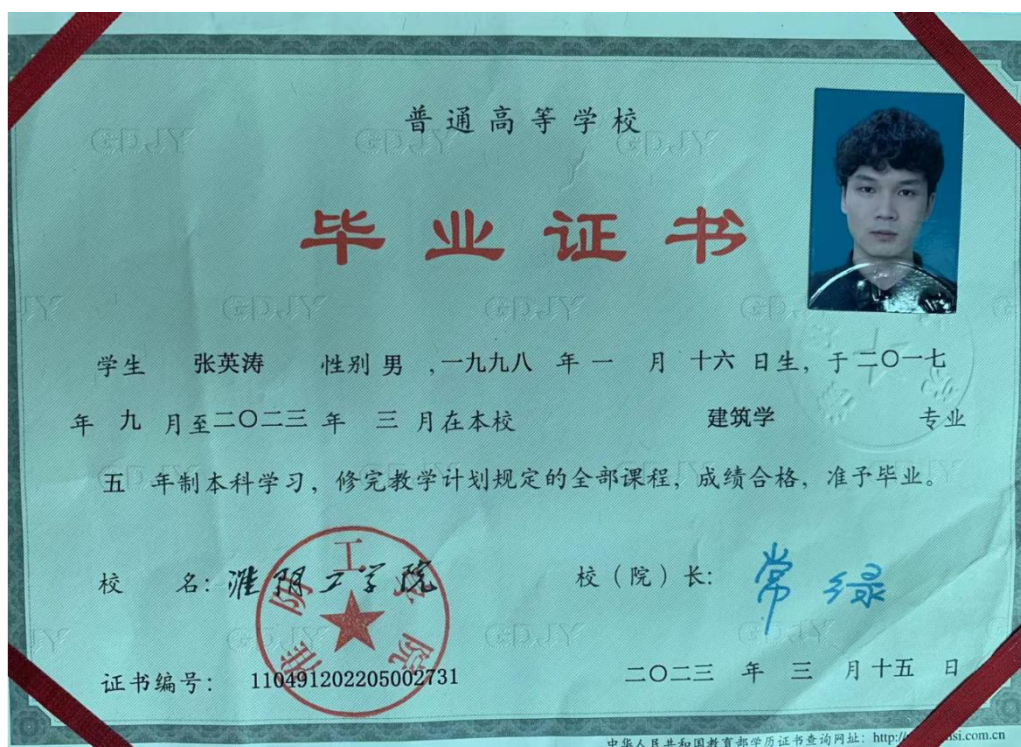 普通高等学校
毕业证书
学生 张英涛 性别 男 ,一九九八 年 一 月 十六 日生, 于二〇一七
年 九 月至二〇二三 年 三 月在本校 建筑学 专业
五 年制本科学习, 修完教学计划规定的全部课程, 成绩合格, 准予毕业。
校 名: 淮阴工学院
淮阴工学院
校（院）长: 常绿
证书编号: 110491202205002731
二〇二三 年 三 月十五 日
中华人民共和国教育部学历证书查询网址: http://
si.com.cn
GDJY GDJY GDJY
GDJY GDJY GDJY
GDJY GDJY